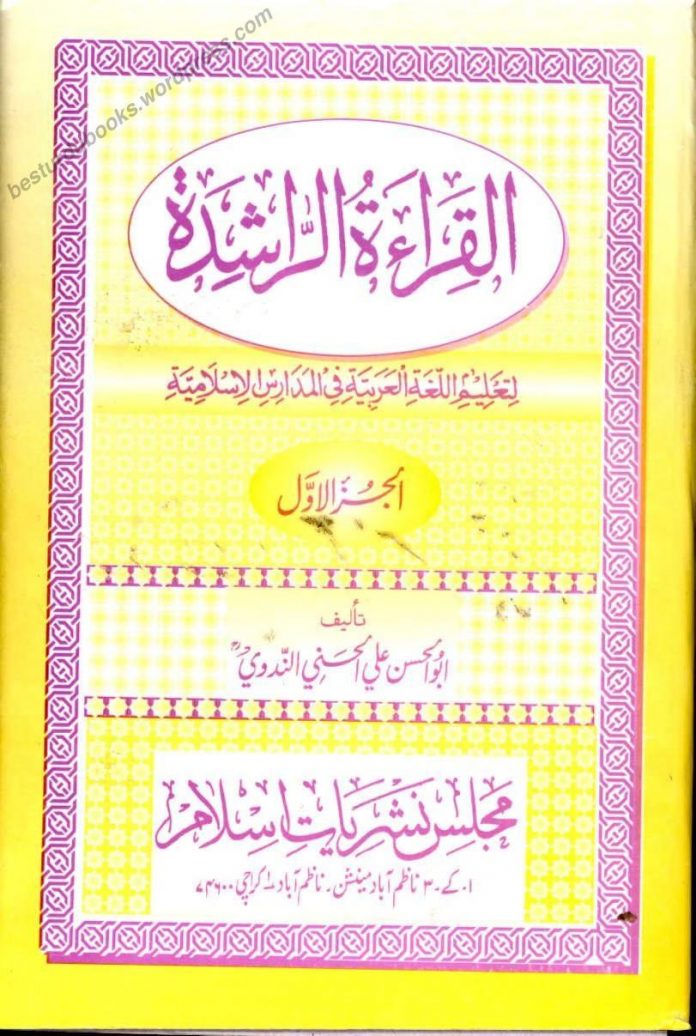 besturdubooks.wordpress.com
القِرَاءَةُ الرَّاشِدَة
لِتَعْلِيْمِ اللُّغَةِ الْعَرَبِيَّةِ فِي الْمَدَارِسِ الْإِسْلَامِيَّةِ
الجُزءُ الأوَّل
تأليف
ابو الحسن علي الحسني الندوي رحمہ
مجلس نشریات اسلام
۱۔ کے۔ ۳ ناظم آباد مینشن۔ ناظم آباد ۱ کراچی ۷۴۶۰۰